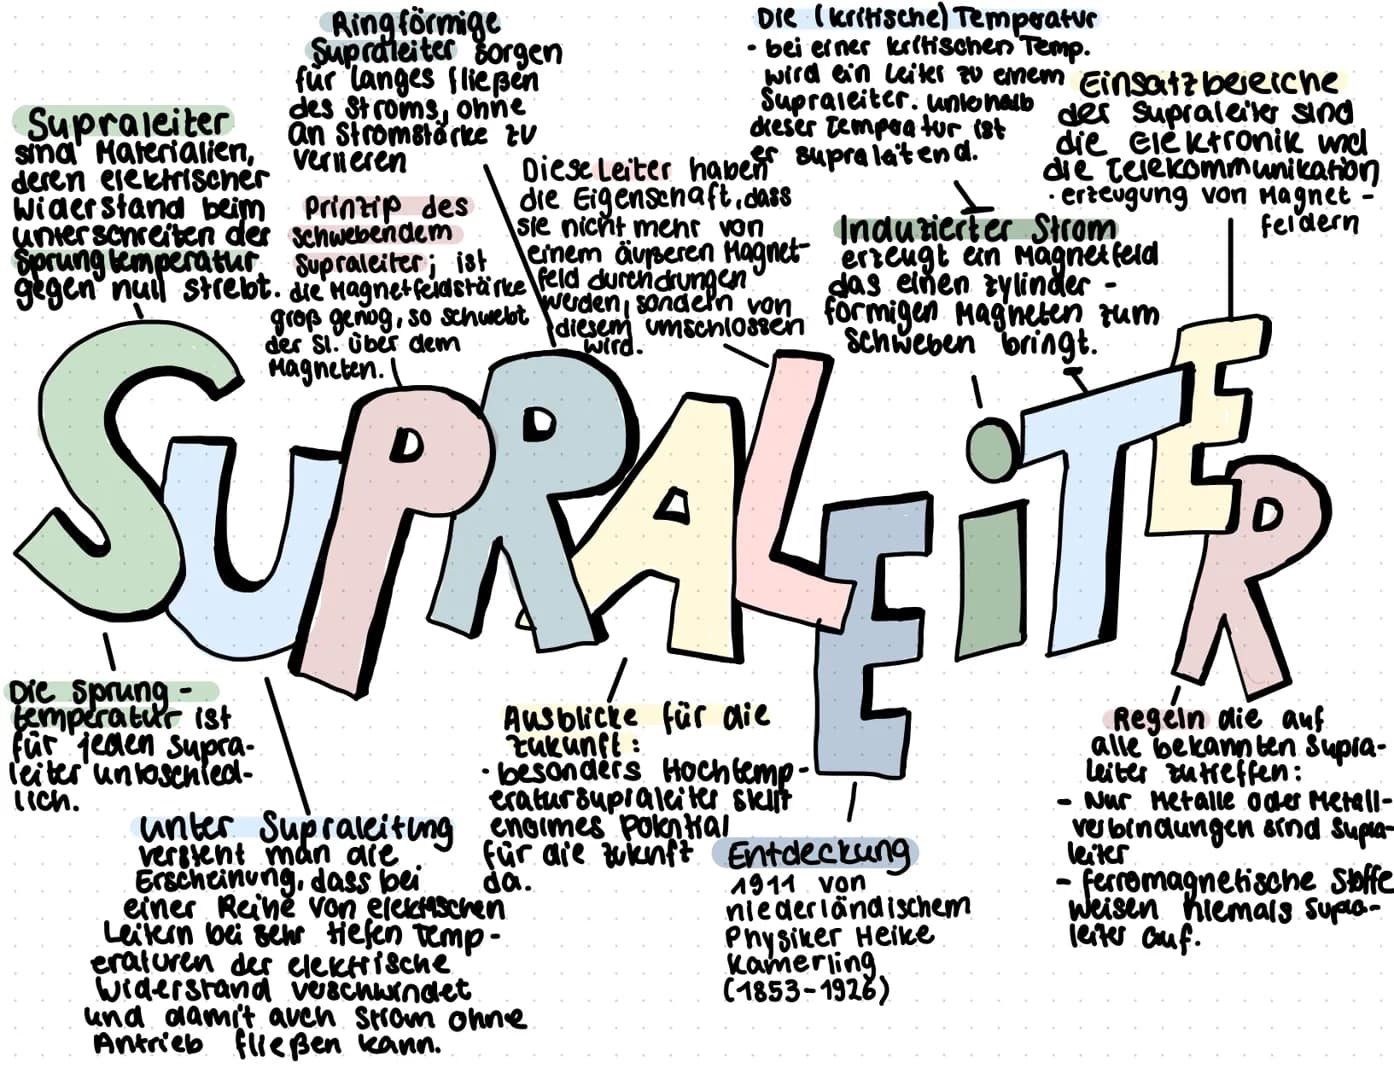 Supraleiter
sind Materialien,
deren elektrischer
Widerstand beim
unterschreiten der
Sprungtemperatur
gegen null strebt.
Ringförmige
Supraleiter sorgen
für langes fließen
des Stroms, ohne
an Stromstärke zu
verlieren
Prinzip des
schwebendem
Supraleiter; ist
die Magnetfeldstärke
groß genug, so schwebt
der Sl. über dem
Magneten.
Diese Leiter haben
die Eigenschaft, dass
sie nicht mehr von
einem äußeren Magnet-
feld durchdrungen
werden, sondern von
diesem umschlossen
wird.
Die (kritische) Temperatur
• bei einer kritischen Temp.
wird ein Leiter zu einem
Supraleiter. unterhalb
dieser Temperatur ist
er supraleitend.
Induzierter Strom
erzeugt ein Magnetfeld
das einen zylinder -
förmigen Magneten zum
Schweben bringt.
Einsatzbereiche
der Supraleiter sind
die Elektronik und
die Telekommunikation
• erzeugung von Magnet -
feldern
SUPRALEiTER
Die Sprung -
temperatur ist
für jeden Supra-
leiter unterschied-
lich.
unter Supraleitung
versteht man die
Erscheinung, dass bei
einer Reihe von elektrischen
Leitern bei sehr tiefen Temp -
eraturen der elektrische
Widerstand verschwindet
und damit auch Strom ohne
Antrieb fließen kann.
Ausblicke für die
Zukunft:
• besonders Hochtemp -
eratursupraleiter stellt
enormes Potential
für die Zukunft
da.
Entdeckung
1911 von
niederländischem
Physiker Heike
Kamerling
(1853-1926)
Regeln die auf
alle bekannten Supra-
leiter zutreffen:
- Nur Metalle oder Metall-
verbindungen sind Supra-
leiter
- ferromagnetische Stoffe
weisen niemals Supra-
leiter auf.